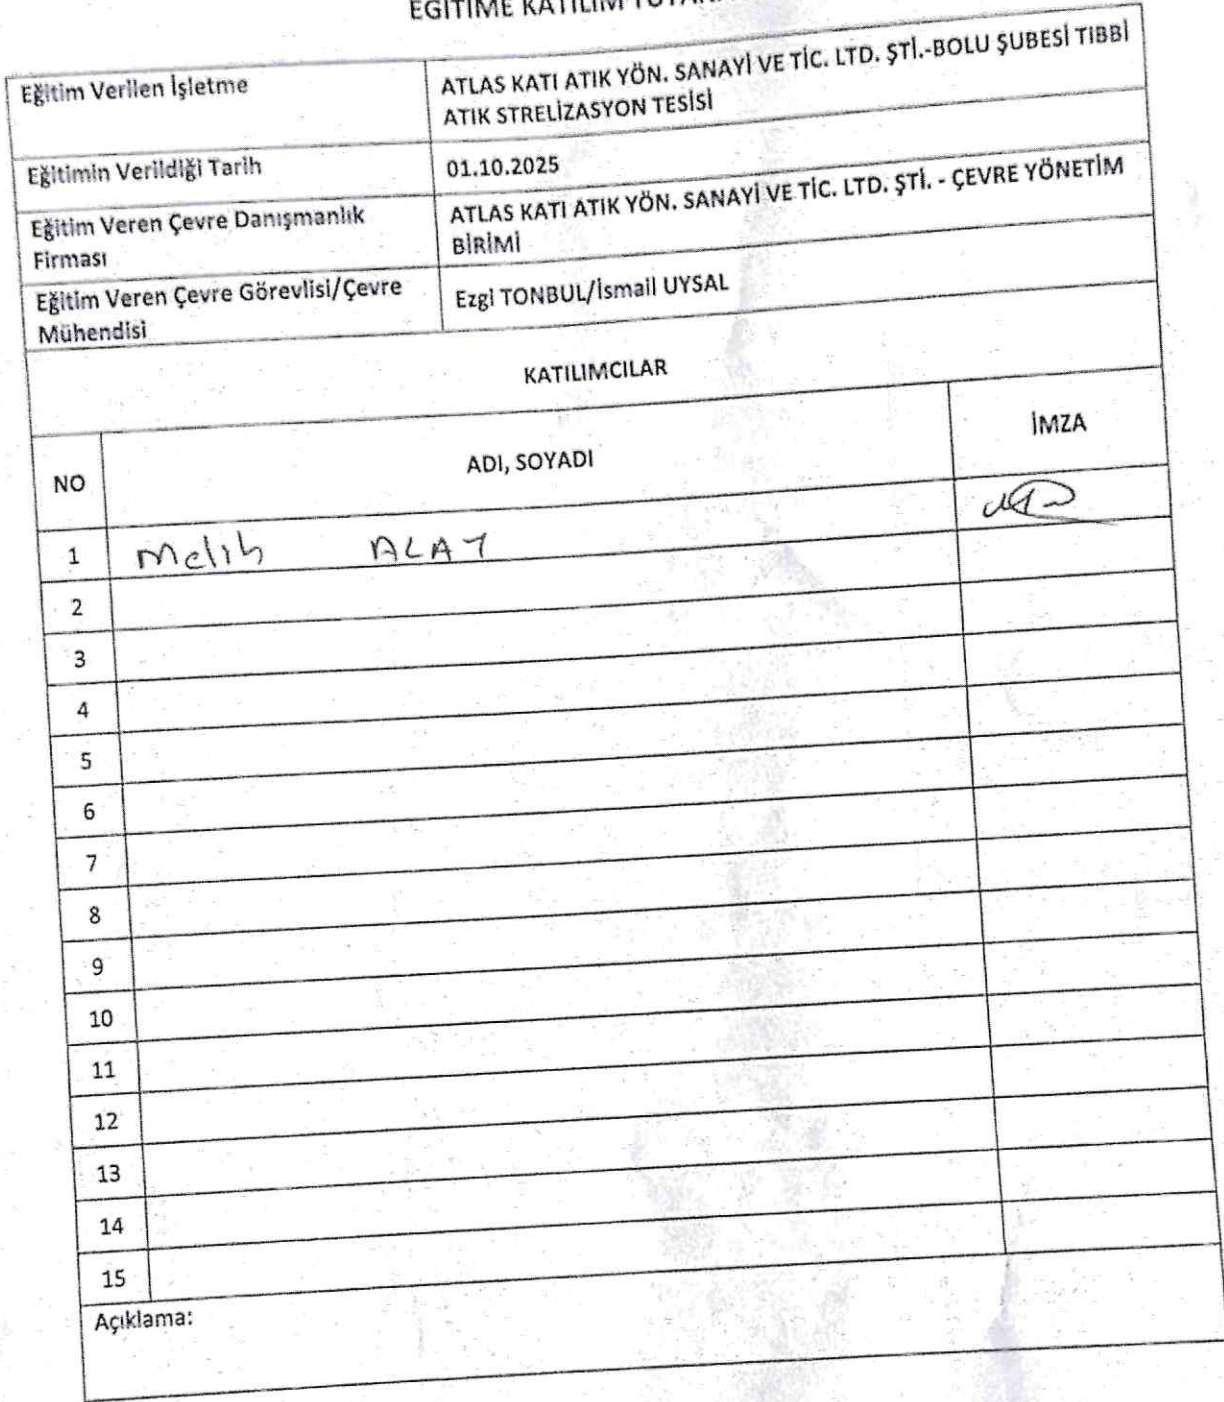 EĞİTİME KATILIM
Eğitim Verilen İşletme
ATLAS KATI ATIK YÖN. SANAYİ VE TİC. LTD. ŞTİ.-BOLU ŞUBESİ TIBBİ
ATIK STRELİZASYON TESİSİ
Eğitimin Verildiği Tarih
01.10.2025
Eğitim Veren Çevre Danışmanlık
Firması
ATLAS KATI ATIK YÖN. SANAYİ VE TİC. LTD. ŞTİ. - ÇEVRE YÖNETİM
BİRİMİ
Eğitim Veren Çevre Görevlisi/Çevre
Mühendisi
Ezgi TONBUL/İsmail UYSAL
KATILIMCILAR
NO ADI, SOYADI İMZA
1 Melih ALAY
2
3
4
5
6
7
8
9
10
11
12
13
14
15
Açıklama: